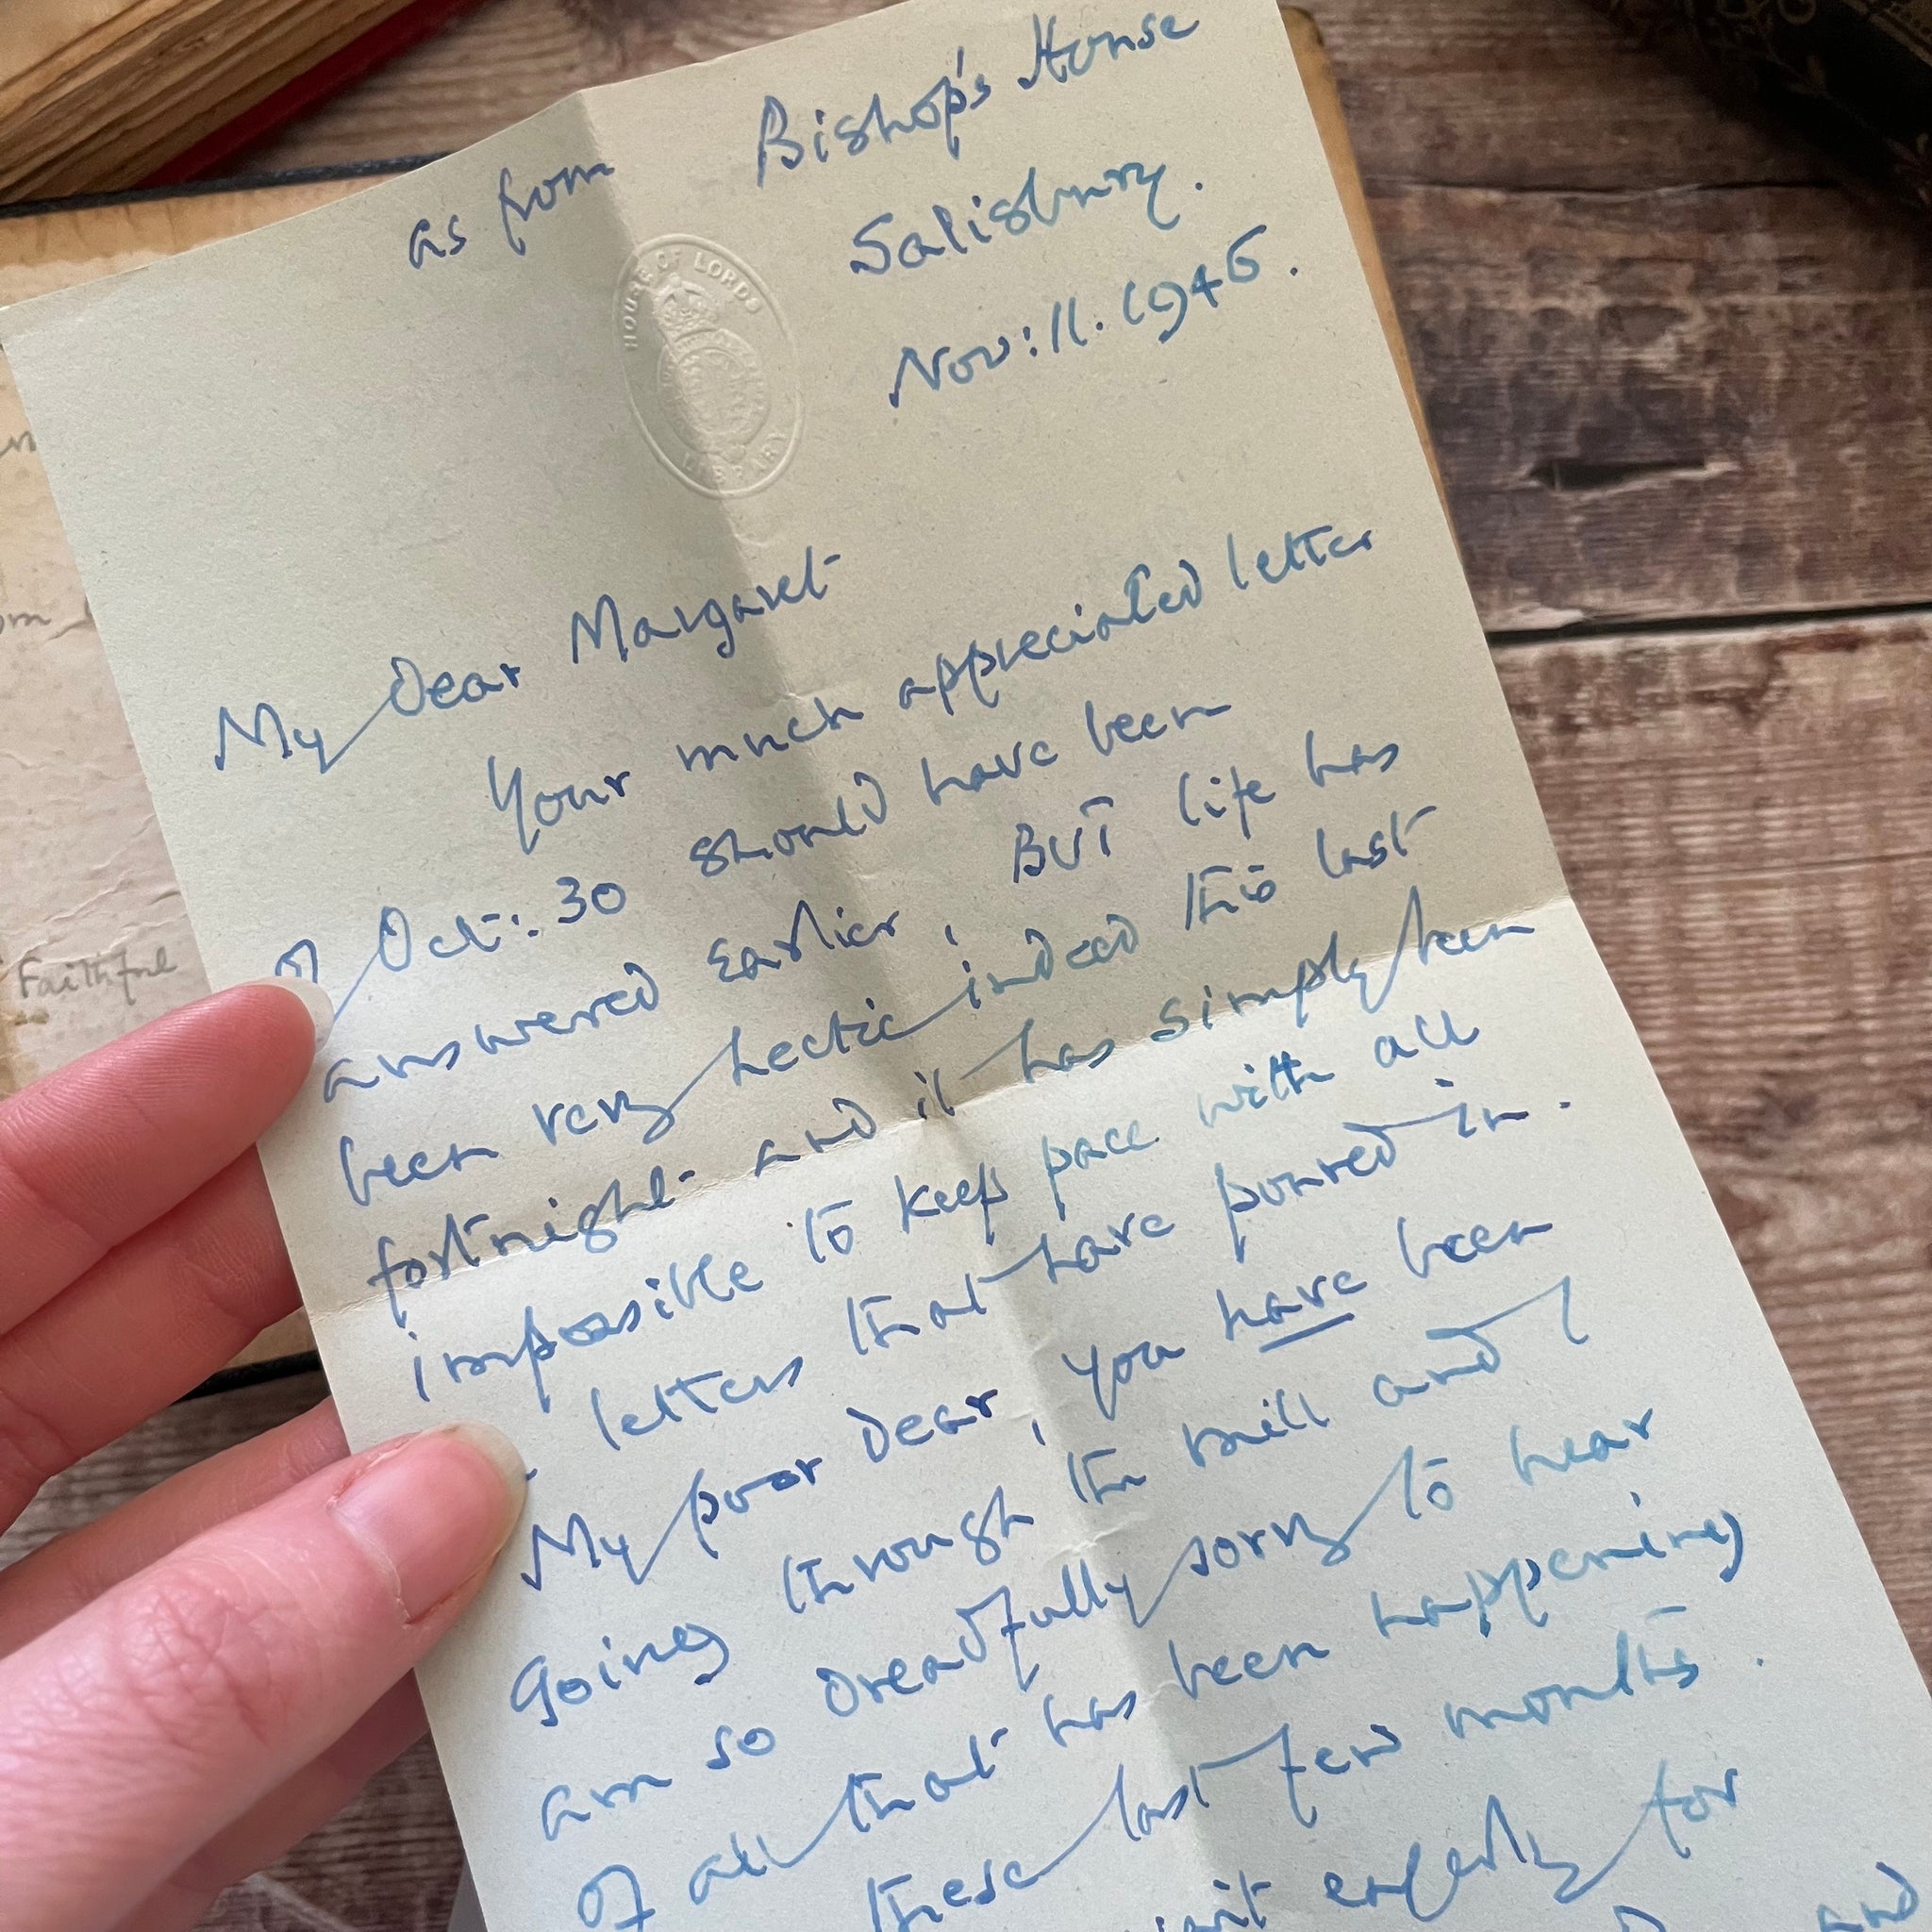 as from Bishop's House
Salisbury.
Nov: 11. 1946.
HOUSE OF LORDS
LIBRARY
My Dear Margaret
Your much appreciated letter
of Oct: 30 should have been
answered earlier, BUT life has
been very hectic indeed this last
fortnight and it has simply been
impossible to keep pace with all
letters that have poured in.
My poor dear, you have been
going through the mill and I
am so dreadfully sorry to hear
of all that has been happening
these last few months.
for
and
Faithful